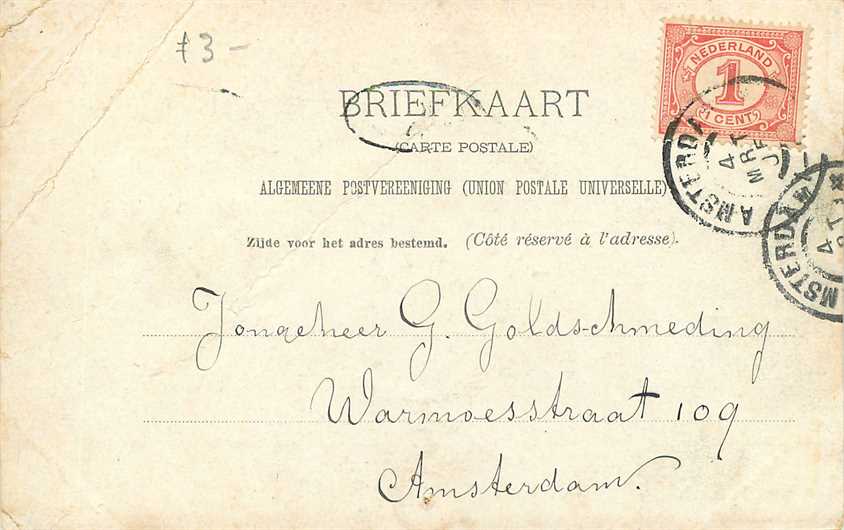 73-
NEDERLAND
1
CENT
BRIEFKAART
(CARTE POSTALE)
ALGEMEENE POSTVEREENIGING (UNION POSTALE UNIVERSELLE)
Zijde voor het adres bestemd. (Côté réservé à l'adresse).
AMSTERDA
4
MRT
AMSTERDAM
4
Jongeheer G. Goldschmeding
Warmoesstraat 109
Amsterdam.